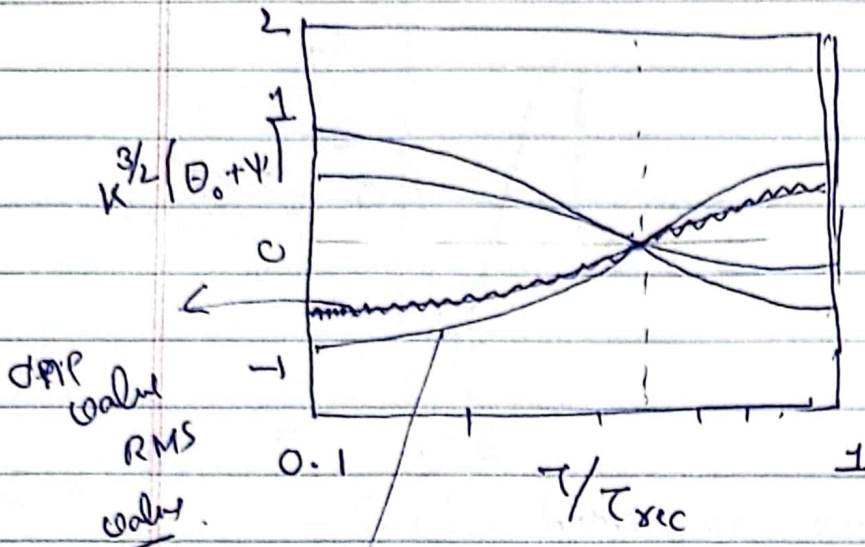 2
1
K^{3/2}|Θ₀+Ψ|
0
-1
value
RMS
value.
0.1
τ/τ_rec
1